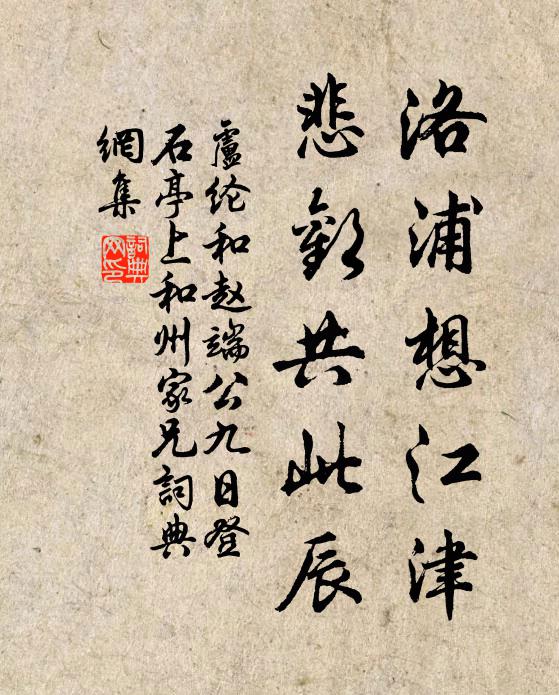 洛浦想江津
悲歡共此辰
盧纶和赵端公九日登
石亭上和州家兄詞典
網集
詞典
网印